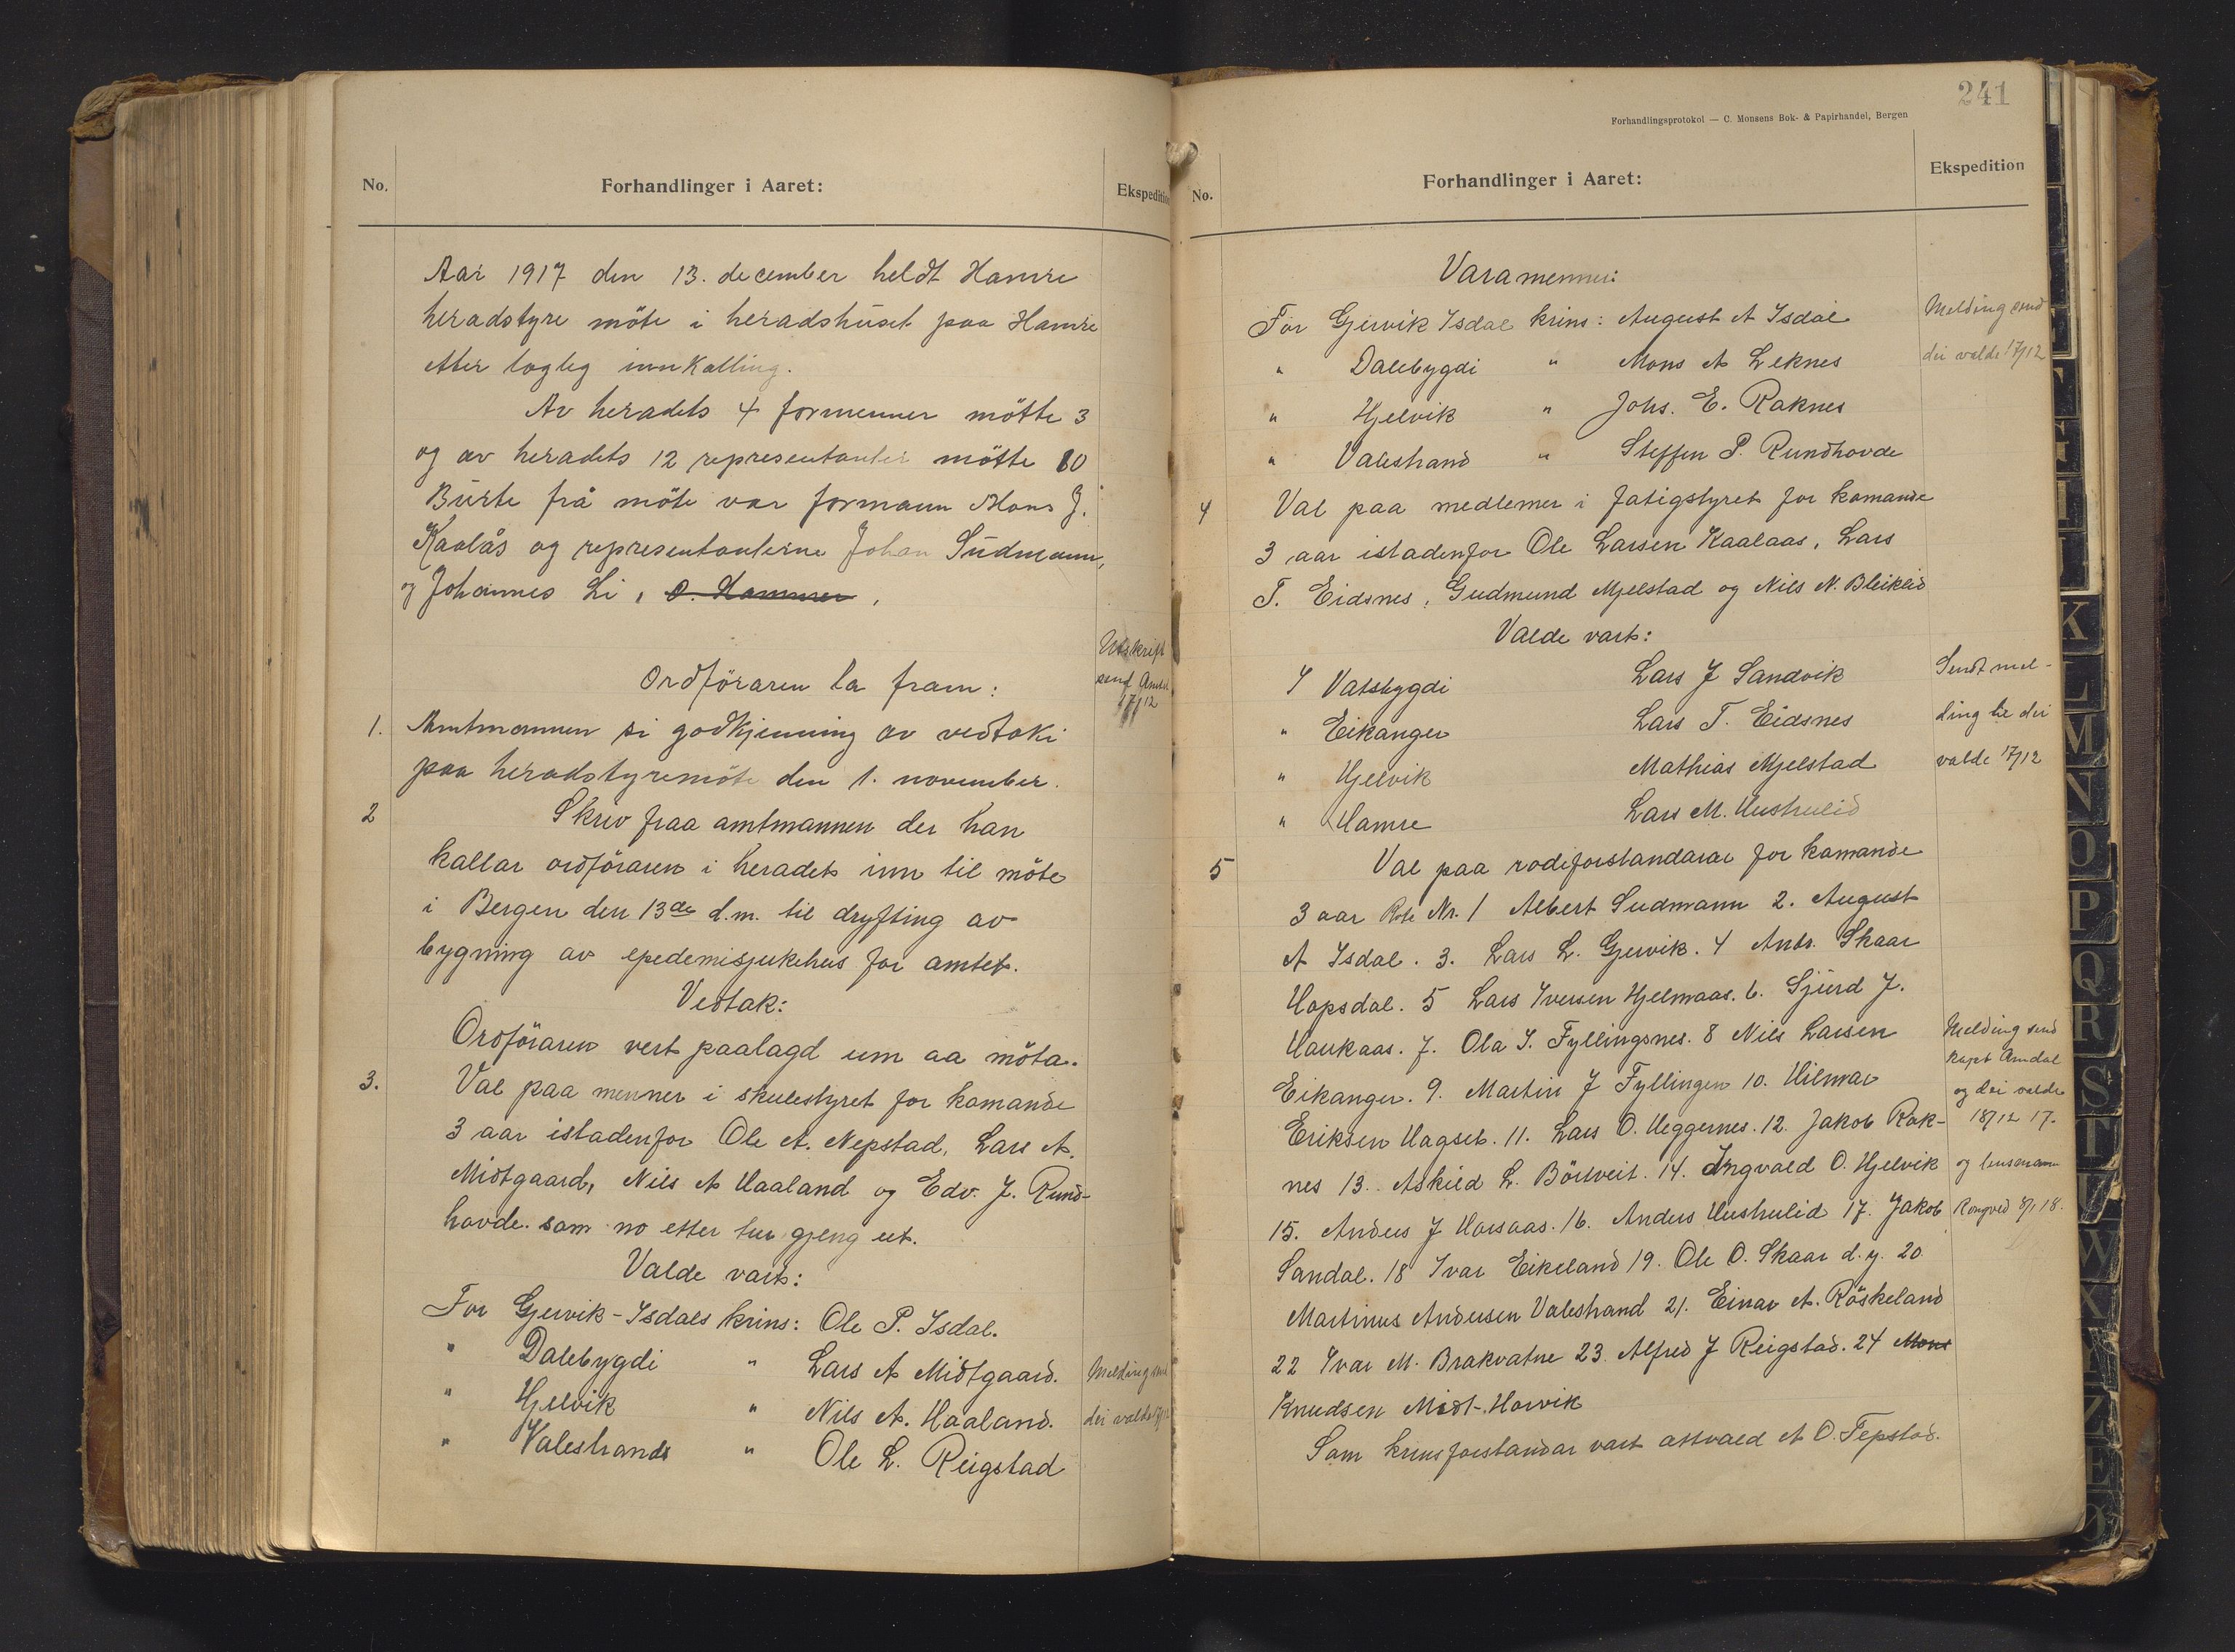 No. Forhandlinger i Aaret: Ekspedition
Aar 1917 den 13. december heldt Hamre
heradstyre möte i heradshuset paa Hamre
etter logleg innkalling.
Av heradets 4 formenner mötte 3
og av heradets 12 representanter mötte 10
Burte frå möte var formann Mons J.
Kaalås og representanterne Johan Sudmann,
og Johannes Li, O. Hammer,
Utskrift
send Amtm
17/12
Ordföraren la fram:
1. Amtmannen si godkjenning av vedtaki
paa heradstyremöte den 1. november.
2 Skriv fraa amtmannen der han
kallar ordföraren i heradet inn til möte
i Bergen den 13de d.m. til dryfting av
bygning av epedemisjukehus for amtet.
Vedtak:
Ordföraren vert paalagd um aa möta.
3. Val paa menner i skulestyret for komande
3 aar istadenfor Ole A. Nepstad, Lars A.
Midtgaard, Nils A Haaland og Edv. J. Rund-
hovde som no etter tur gjeng ut.
Valde vart:
For Gjervik-Isdals krins: Ole P. Isdal.
" Dalebygdi " Lars A Midtgaard.
" Hjelvik " Nils A. Haaland.
" Valestrands " Ole L. Reigstad
Melding send
dei valde 17/12
241
Forhandlingsprotokol — C. Monsens Bok- & Papirhandel, Bergen
No. Forhandlinger i Aaret: Ekspedition
Varamenner:
For Gjervik Isdal krins: August A Isdal
" Dalebygdi " Mons A Leknes
" Hjelvik " Johs. E. Raknes
" Valestrand " Steffen P. Rundhovde
Melding send
dei valde 17/12
4 Val paa medlemer i fatigstyret for komande
3 aar istadenfor Ole Larsen Kaalaas, Lars
T. Eidsnes, Gudmund Mjelstad og Nils N. Bleiklid
Valde vart:
I Vatsbygdi Lars J Sandvik
" Eikanger Lars T. Eidsnes
" Hjelvik Mathias Mjelstad
" Hamre Lars M. Hushulid
Sendt mel-
ding til dei
valde 17/12
5 Val paa rodeforstandarar for komande
3 aar Rode Nr. 1 Albert Sudmann 2. August
A Isdal. 3. Lars L. Gjervik. 4 Andr. Skaar
Hopsdal. 5 Lars Iversen Hjelmaas. 6. Sjurd J.
Haukaas. 7. Ola I. Fyllingsnes. 8 Nils Larsen
Eikanger. 9. Martin J Fyllingen 10. Hilmar
Eriksen Hagset. 11. Lars O. Heggernes. 12. Jakob Rak-
nes 13. Askild L. Börtveit. 14. Ingvald O. Hjelvik
15. Anders J Horsaas. 16. Anders Hushulid 17. Jakob
Sandal. 18 Ivar Eikeland 19. Ole O. Skaar d.y. 20
Martinus Andersen Valestrand 21. Einar A. Röskeland
22 Ivar M. Brakvatne 23. Alfred J Reigstad. 24 Mons
Knudsen Midt-Horvik
Som krinsforstandar vart attvald A O. Tepstad.
Melding send
kapt Amdal
og dei valde
18/12 17.
og lensmann
Rongved 8/1 18.
K
L
M
N
O
P
Q
R
S
T